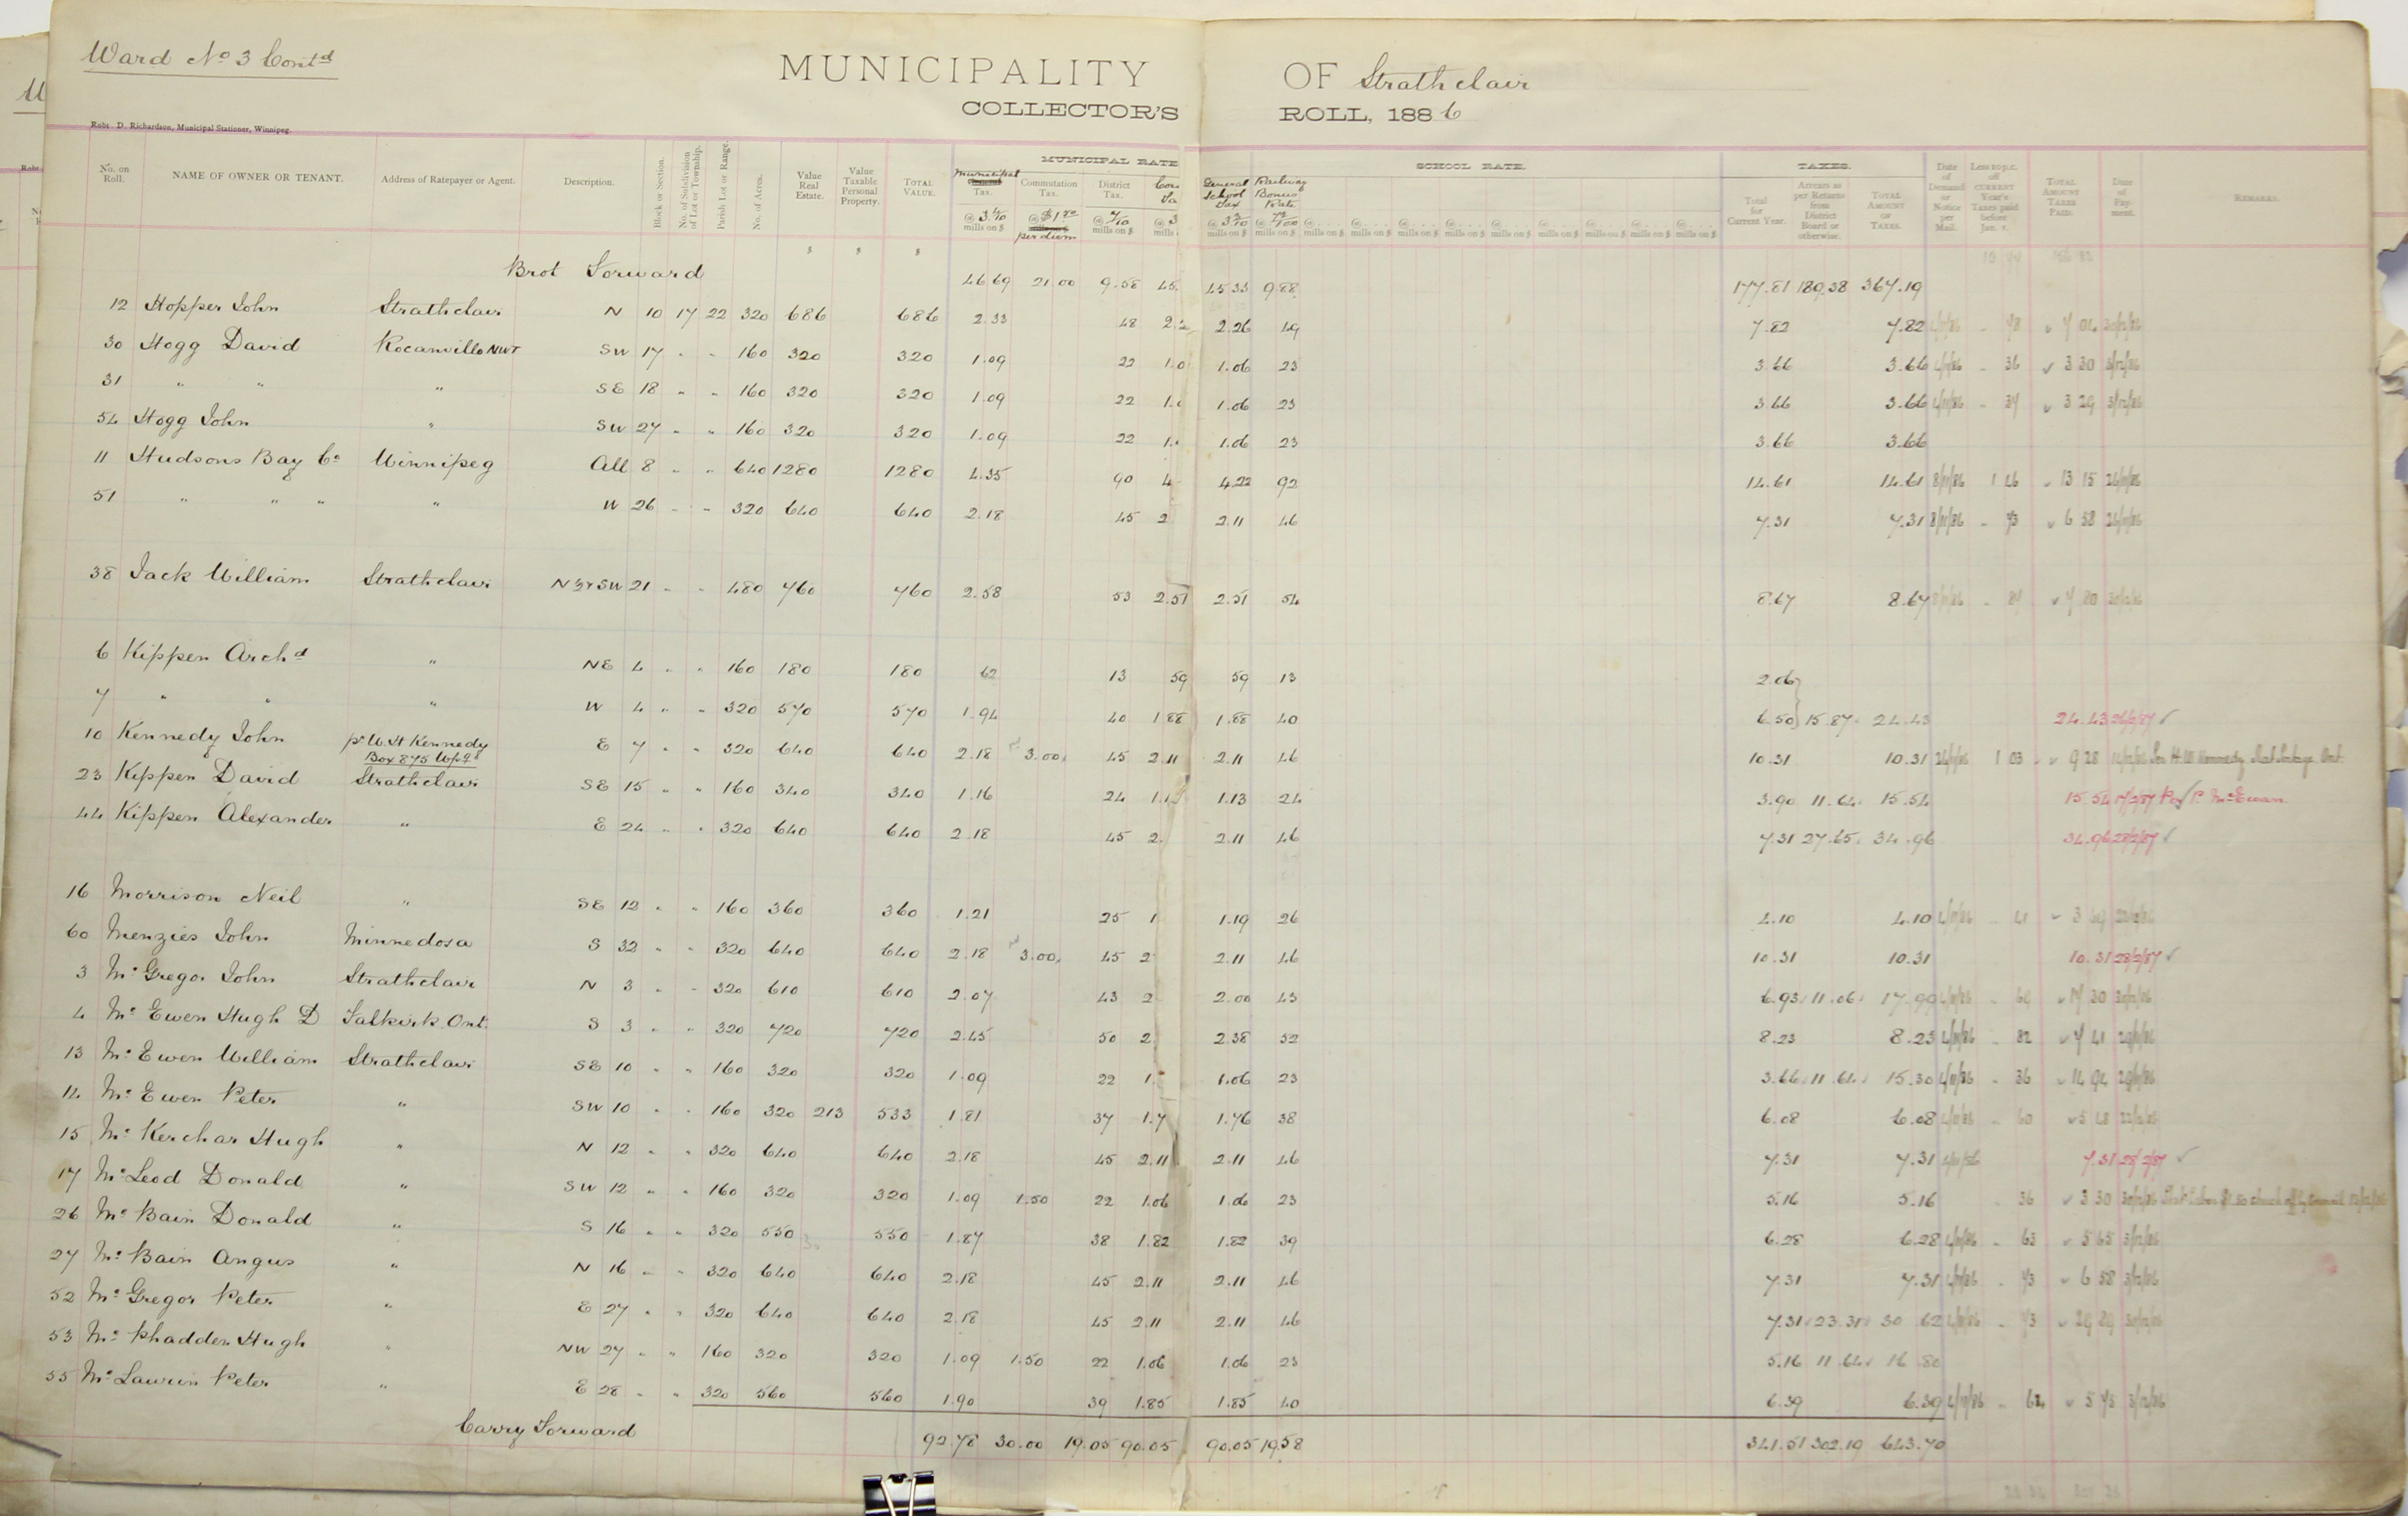 Ward No 3 Contd
MUNICIPALITY OF Strathclair
COLLECTOR'S ROLL, 1886
Robt. D. Richardson, Municipal Stationer, Winnipeg.
MUNICIPAL RATE SCHOOL RATE. TAXES.
No. on Roll. NAME OF OWNER OR TENANT. Address of Ratepayer or Agent. Description. Block or Section. No. of Subdivision of Lot or Township. Parish Lot or Range. No. of Acres. Value Real Estate. Value Taxable Personal Property. TOTAL VALUE. Municipal Tax. Commutation Tax. District Tax. General School Tax Railway Bonus Rate Total for Current Year. Arrears as per Returns from District Board or otherwise. TOTAL AMOUNT OF TAXES. Date of Demand or Notice per Mail. Less 10 p.c. off CURRENT Year's Taxes paid before Jan. 1. TOTAL AMOUNT TAXES PAID. Date of Payment. REMARKS.
Brot Forward 46 69 21.00 9.58 45 33 9 88 177.81 189.38 367.19
12 Hopper John Strathclair N 10 17 22 320 686 686 2.33 48 2.26 49 7.82 7.82
30 Hogg David Rocanville NWT SW 17 " " 160 320 320 1.09 22 1.06 23 3.66 3.66 36 3 30
31 " " " SE 18 " " 160 320 320 1.09 22 1.06 23 3.66 3.66 37 3 29
54 Hogg John " SW 27 " " 160 320 320 1.09 22 1.06 23 3.66 3.66
11 Hudsons Bay Co Winnipeg All 8 " " 640 1280 1280 4.35 90 4.22 92 14.61 14.61 1 46 13 15
51 " " " " W 26 " " 320 640 640 2.18 45 2 2.11 46 7.31 7.31 73 6 58
38 Jack William Strathclair N½ & SW 21 " " 480 760 760 2.58 53 2.51 2.51 54 8.67 8.67 87 7 80
6 Kippen Archd " NE 4 " " 160 180 180 62 13 59 59 13 2.06
7 " " " W 4 " " 320 570 570 1.94 40 1.88 1.88 40 6.50 15.87 24.43 24.43
10 Kennedy John pr W. H Kennedy Box 875 Wpg E 7 " " 320 640 640 2.18 3.00 45 2.11 2.11 46 10.31 10.31 1 03 9 28
23 Kippen David Strathclair SE 15 " " 160 340 340 1.16 24 1.13 24 3.90 11.64 15.54 15.54 Per P. McEwan
44 Kippen Alexander " E 24 " " 320 640 640 2.18 45 2.11 46 7.31 27.65 34.96 34.96 28/2/87
16 Morrison Neil " SE 12 " " 160 360 360 1.21 25 1 1.19 26 4.10 4.10 41 3 69
60 Menzies John Minnedosa S 32 " " 320 640 640 2.18 3.00 45 2 2.11 46 10.31 10.31 10.31 28/2/87
3 McGregor John Strathclair N 3 " " 320 610 610 2.07 43 2 2.00 43 6.93 11.06 17.99 69 17 30
4 McEwen Hugh D Falkirk Ont. S 3 " " 320 720 720 2.45 50 2 2.38 52 8.23 8.23 82 7 41
13 McEwen William Strathclair SE 10 " " 160 320 320 1.09 22 1. 1.06 23 3.66 11.64 15.30 36 14 94
14 McEwen Peter " SW 10 " " 160 320 213 533 1.81 37 1.7 1.76 38 6.08 6.08 60 5 48
15 McKerchar Hugh " N 12 " " 320 640 640 2.18 45 2.11 2.11 46 7.31 7.31 7.31
17 McLeod Donald " SW 12 " " 160 320 320 1.09 1.50 22 1.06 1.06 23 5.16 5.16 36 3 30
26 McBain Donald " S 16 " " 320 550 550 1.87 38 1.82 1.82 39 6.28 6.28 63 5 65
27 McBain Angus " N 16 " " 320 640 640 2.18 45 2.11 2.11 46 7.31 7.31 73 6 58
52 McGregor Peter " E 27 " " 320 640 640 2.18 45 2.11 2.11 46 7.31 23.31 30.62 73 29 89
53 McPhadden Hugh " NW 27 " " 160 320 320 1.09 1.50 22 1.06 1.06 23 5.16 11.64 16.80
55 McLaurin Peter " E 28 " " 320 560 560 1.90 39 1.85 1.85 40 6.39 6.39 64 5 75
Carry Forward 92.78 30.00 19.05 90.05 90.05 19.58 341.51 302.19 643.70